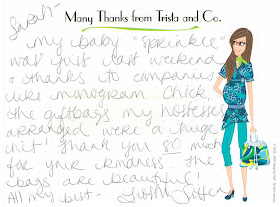 Sarah-
Many Thanks from Trista and Co.
My baby "sprinkle"
was just last weekend
& thanks to companies
like monogram chick,
the giftbags my hostesses
arranged were a huge
hit! Thank you SO much
for your kindness. The
bags are beautiful!
All my best-